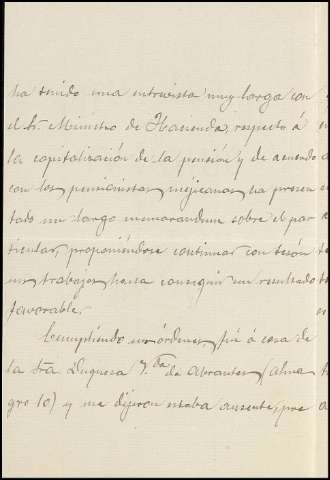 ha tenido una entrevista muy larga con
el Sr. Ministro de Hacienda, respecto á
la capitalización de la pensión y de acuerdo
con los pensionistas mejicanos, ha presen
tado un largo memorandum sobre el par
ticular, proponiéndose continuar con tesón
sus trabajos, hasta conseguir un resultado
favorable.
Cumpliendo sus órdenes, fuí á casa de
la Sra Duquesa V.da de Abrantes, (Alma
gro 10) y me dijeron estaba ausente, pre